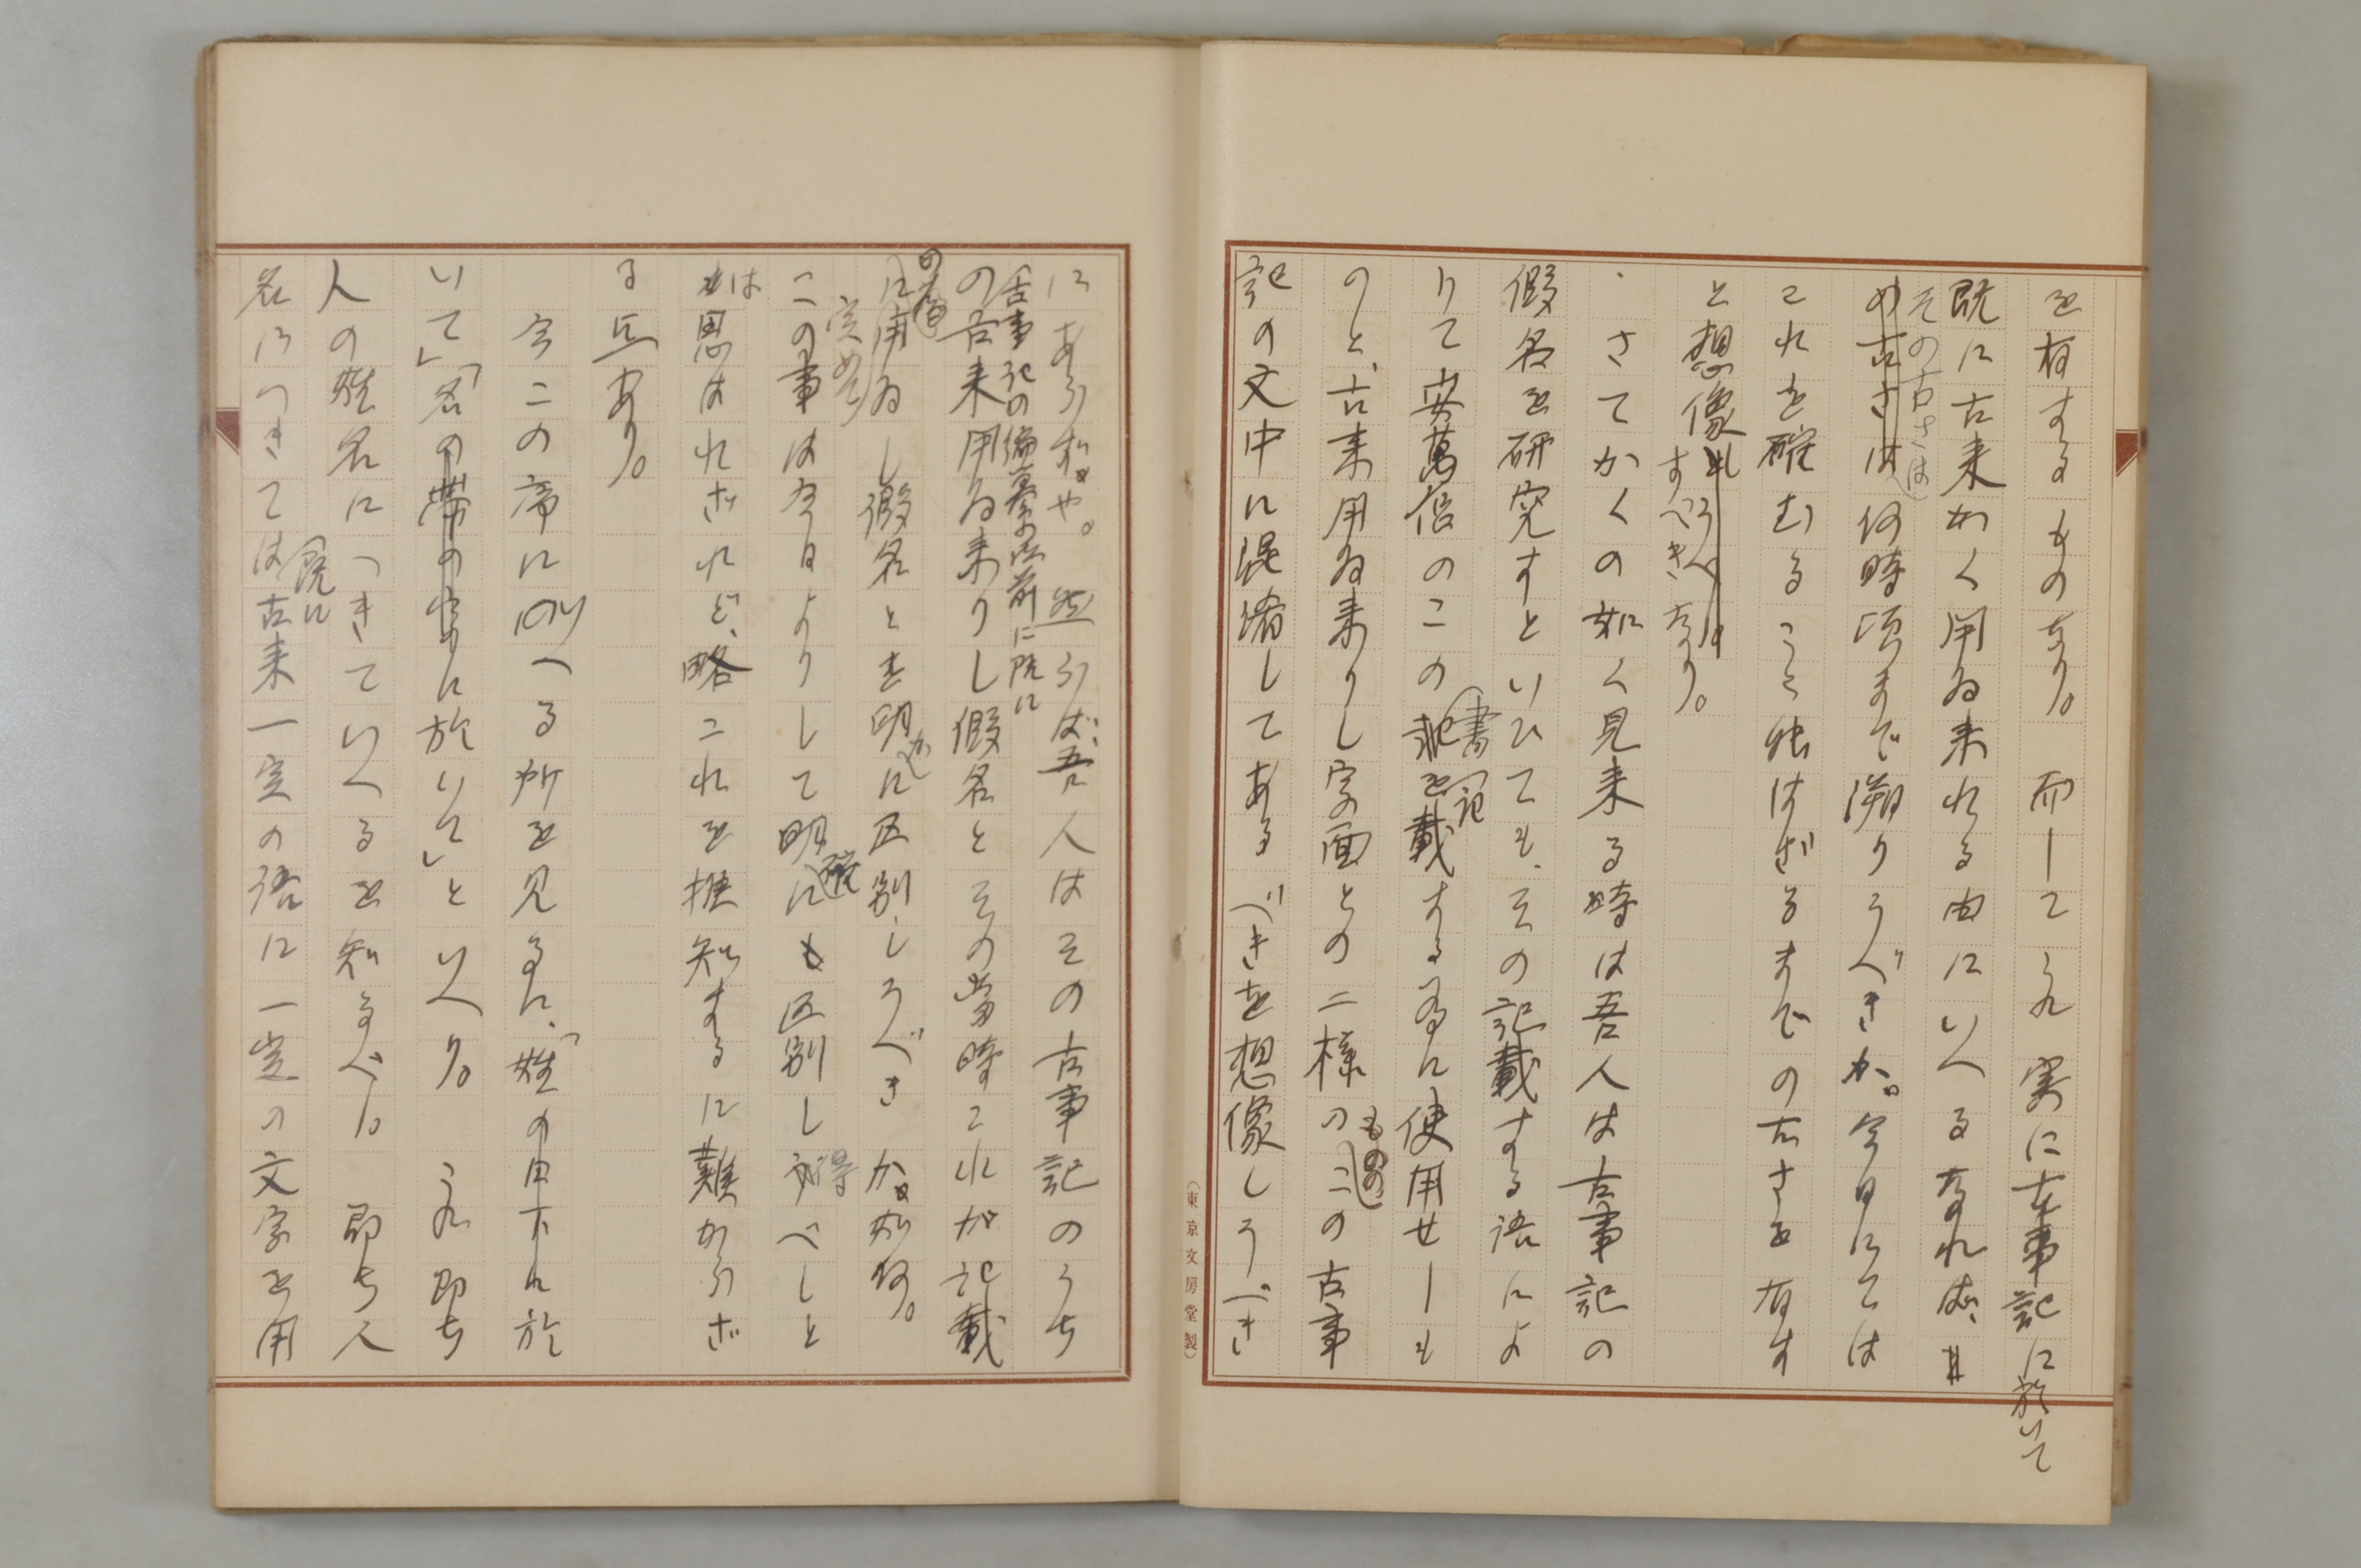 を有するものなり。而してこれ実に古事記に於いて
既に古来かく用ゐ来れる由にいへるなれば、
その古さは
の古さは何時頃まで溯りうべきか。今日にては
これを確むること能はざるまでの古さを有す
と想像
すべきなり。
さてかくの如く見来る時は吾人は古事記の
假名を研究すといひても、その記載する語によ
りて安萬侶のこの
書
記
を載する為に使用せしも
のと、古来用ゐ来りし字面との二様の
ものの
この古事
記の文中に混淆してあるべきを想像しうべき
(東京文房堂製)
にあらずや。然らば、吾人はその古事記のうち
古事記の編纂以前に既に
の古来用ゐ来りし假名とその当時これが記載
の為
に用ゐし假名とを明
かに区別しうべきか如何。
定めて
この事は今日よりして明
確
にも区別し
得
べしと
は
思はれざれど、略これを推知するに難からざ
る点あり。
今この序に四へる所を見るに、「姓の日下に於
いて」「名の帯の字に於いて」といへり。これ即ち
人の姓名につきていへるを知るべし。即ち人
名につきては
既に
古来一定の語に一定の文字を用